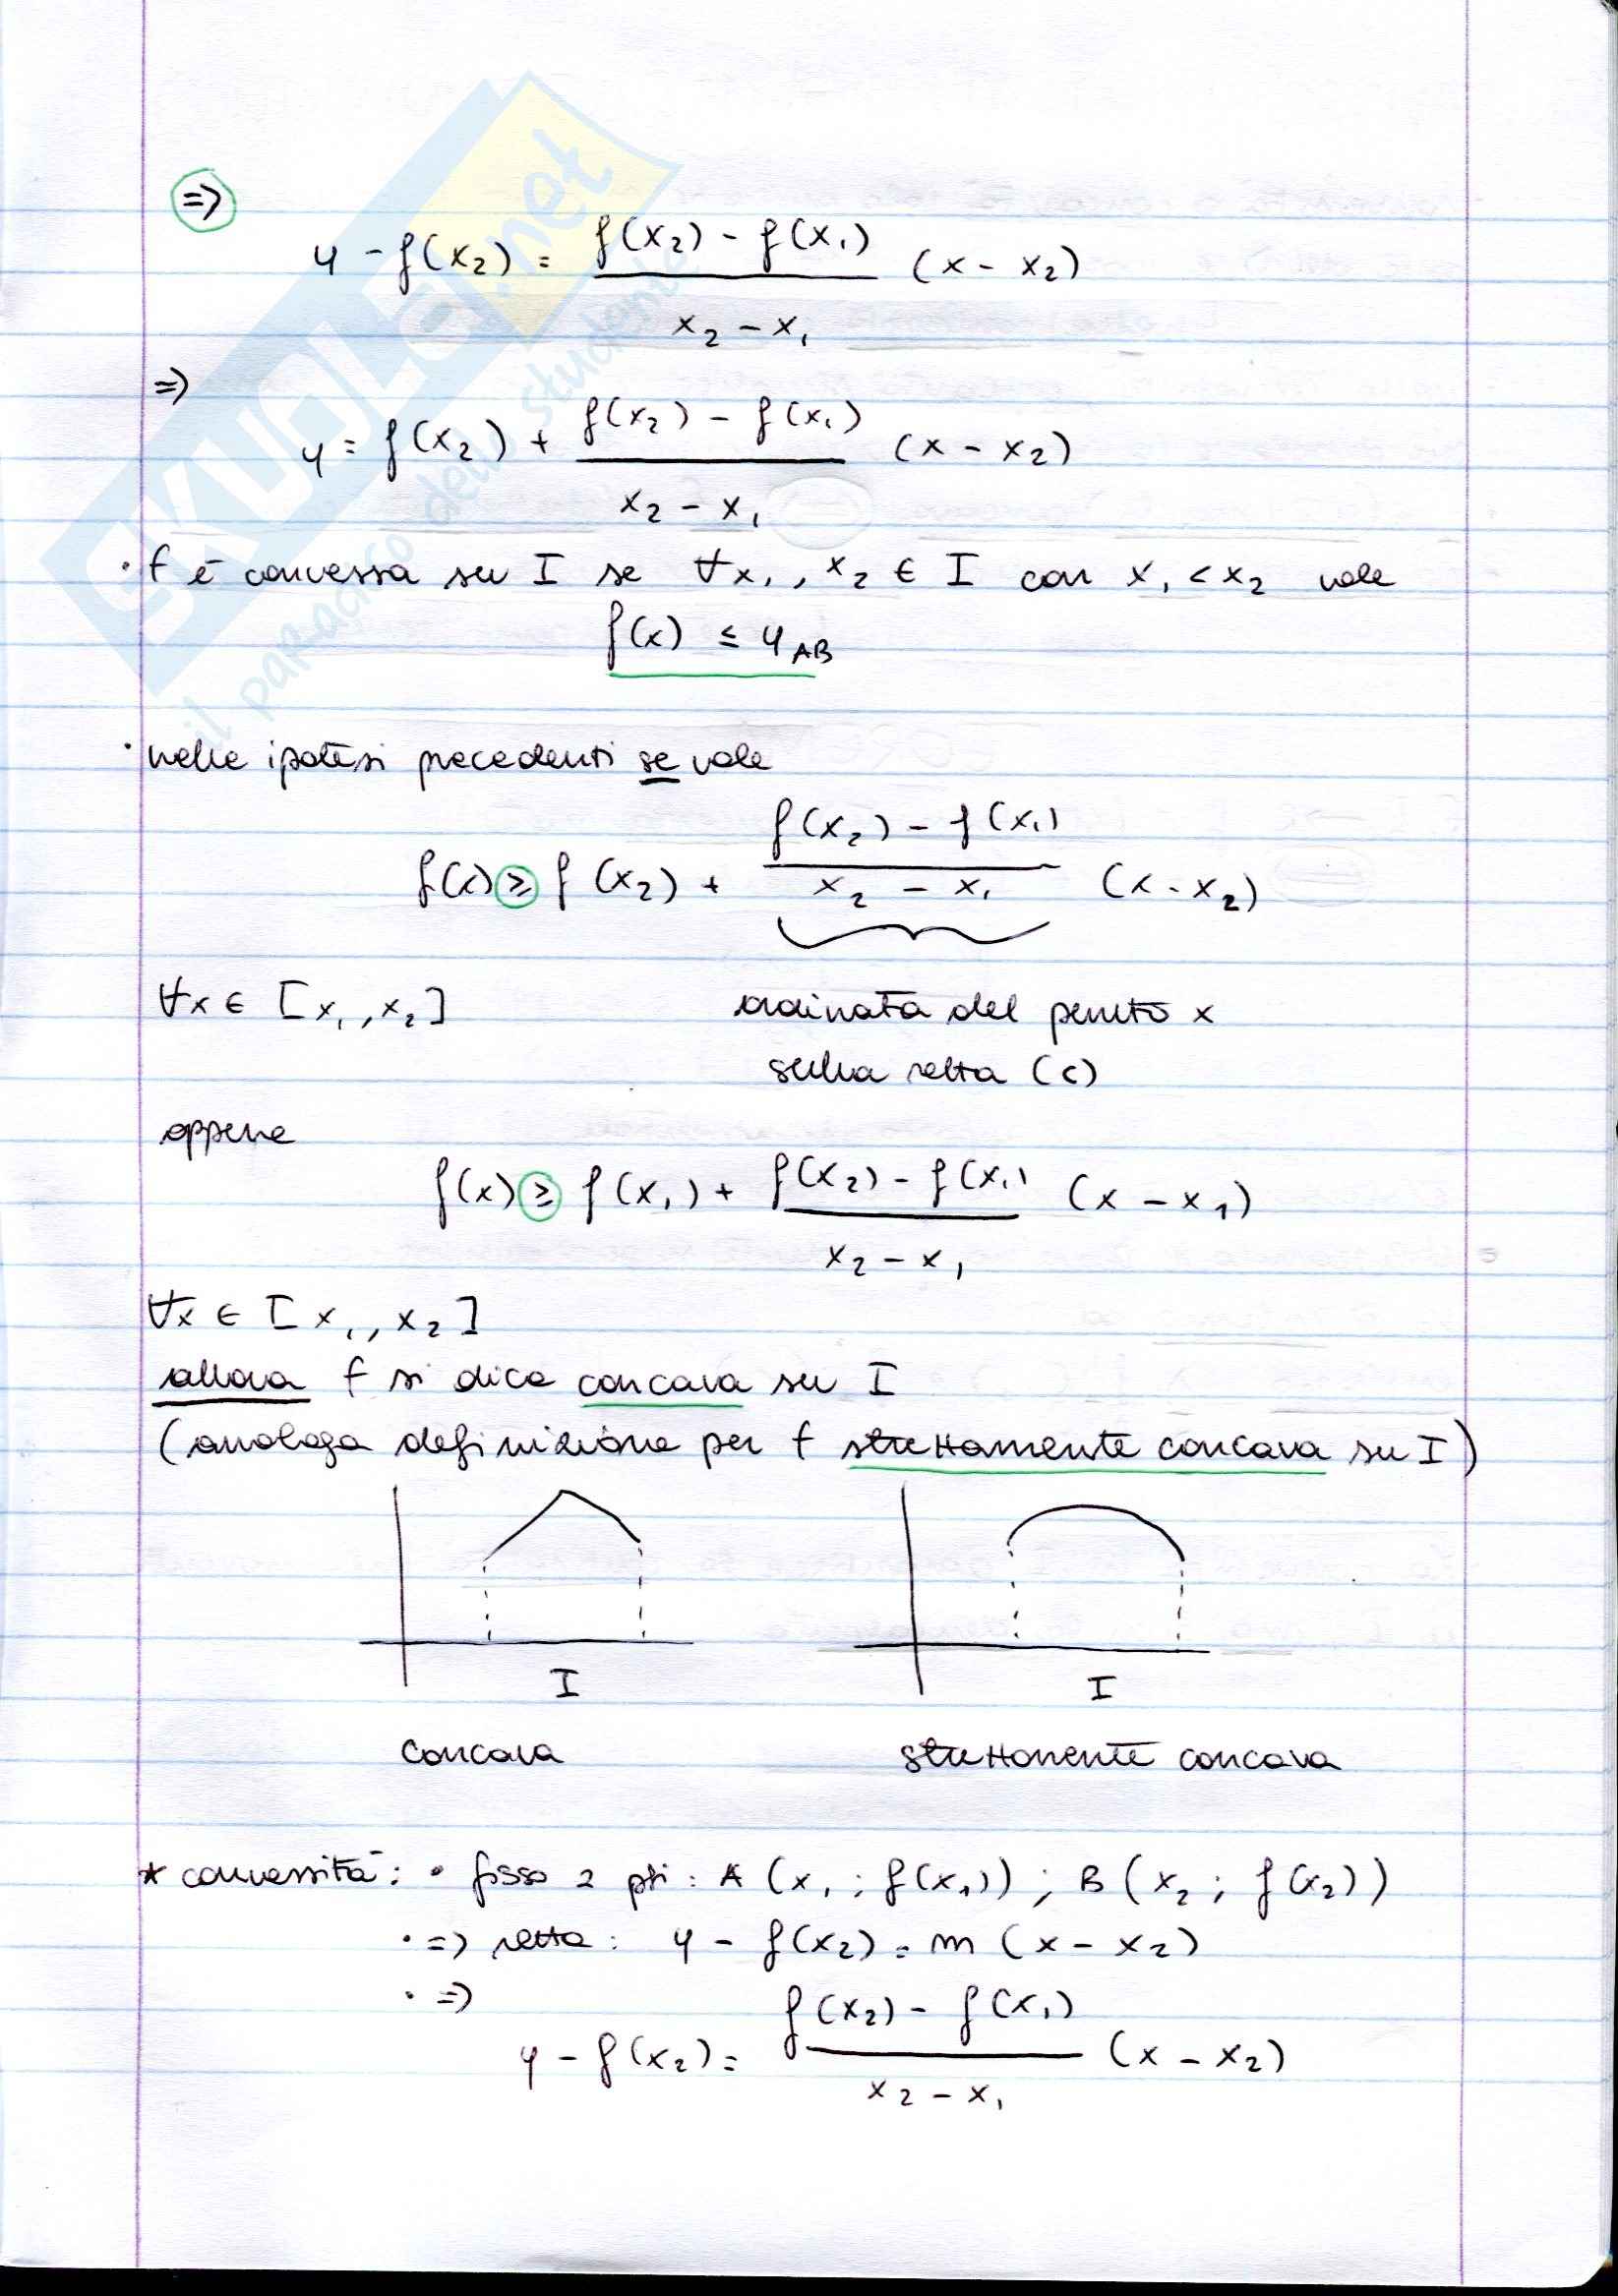 =>
y - f(x₂) = (f(x₂) - f(x₁)) / (x₂ - x₁) (x - x₂)
=>
y = f(x₂) + (f(x₂) - f(x₁)) / (x₂ - x₁) (x - x₂)
• f è convessa su I se ∀x₁, x₂ ∈ I con x₁ < x₂ vale
f(x) ≤ y_AB
• nelle ipotesi precedenti se vale
f(x) ≥ f(x₂) + (f(x₂) - f(x₁)) / (x₂ - x₁) (x - x₂)
∀x ∈ [x₁, x₂] ordinata del punto x
sulla retta (c)
oppure
f(x) ≥ f(x₁) + (f(x₂) - f(x₁)) / (x₂ - x₁) (x - x₁)
∀x ∈ [x₁, x₂]
allora f si dice concava su I
(analoga definizione per f strettamente concava su I)
I I
concava strettamente concava
* convessità: • fisso 2 pti: A (x₁; f(x₁)); B (x₂; f(x₂))
• => retta: y - f(x₂) = m (x - x₂)
• =>
y - f(x₂) = (f(x₂) - f(x₁)) / (x₂ - x₁) (x - x₂)
SKUOLA.net
il paradiso dello studente